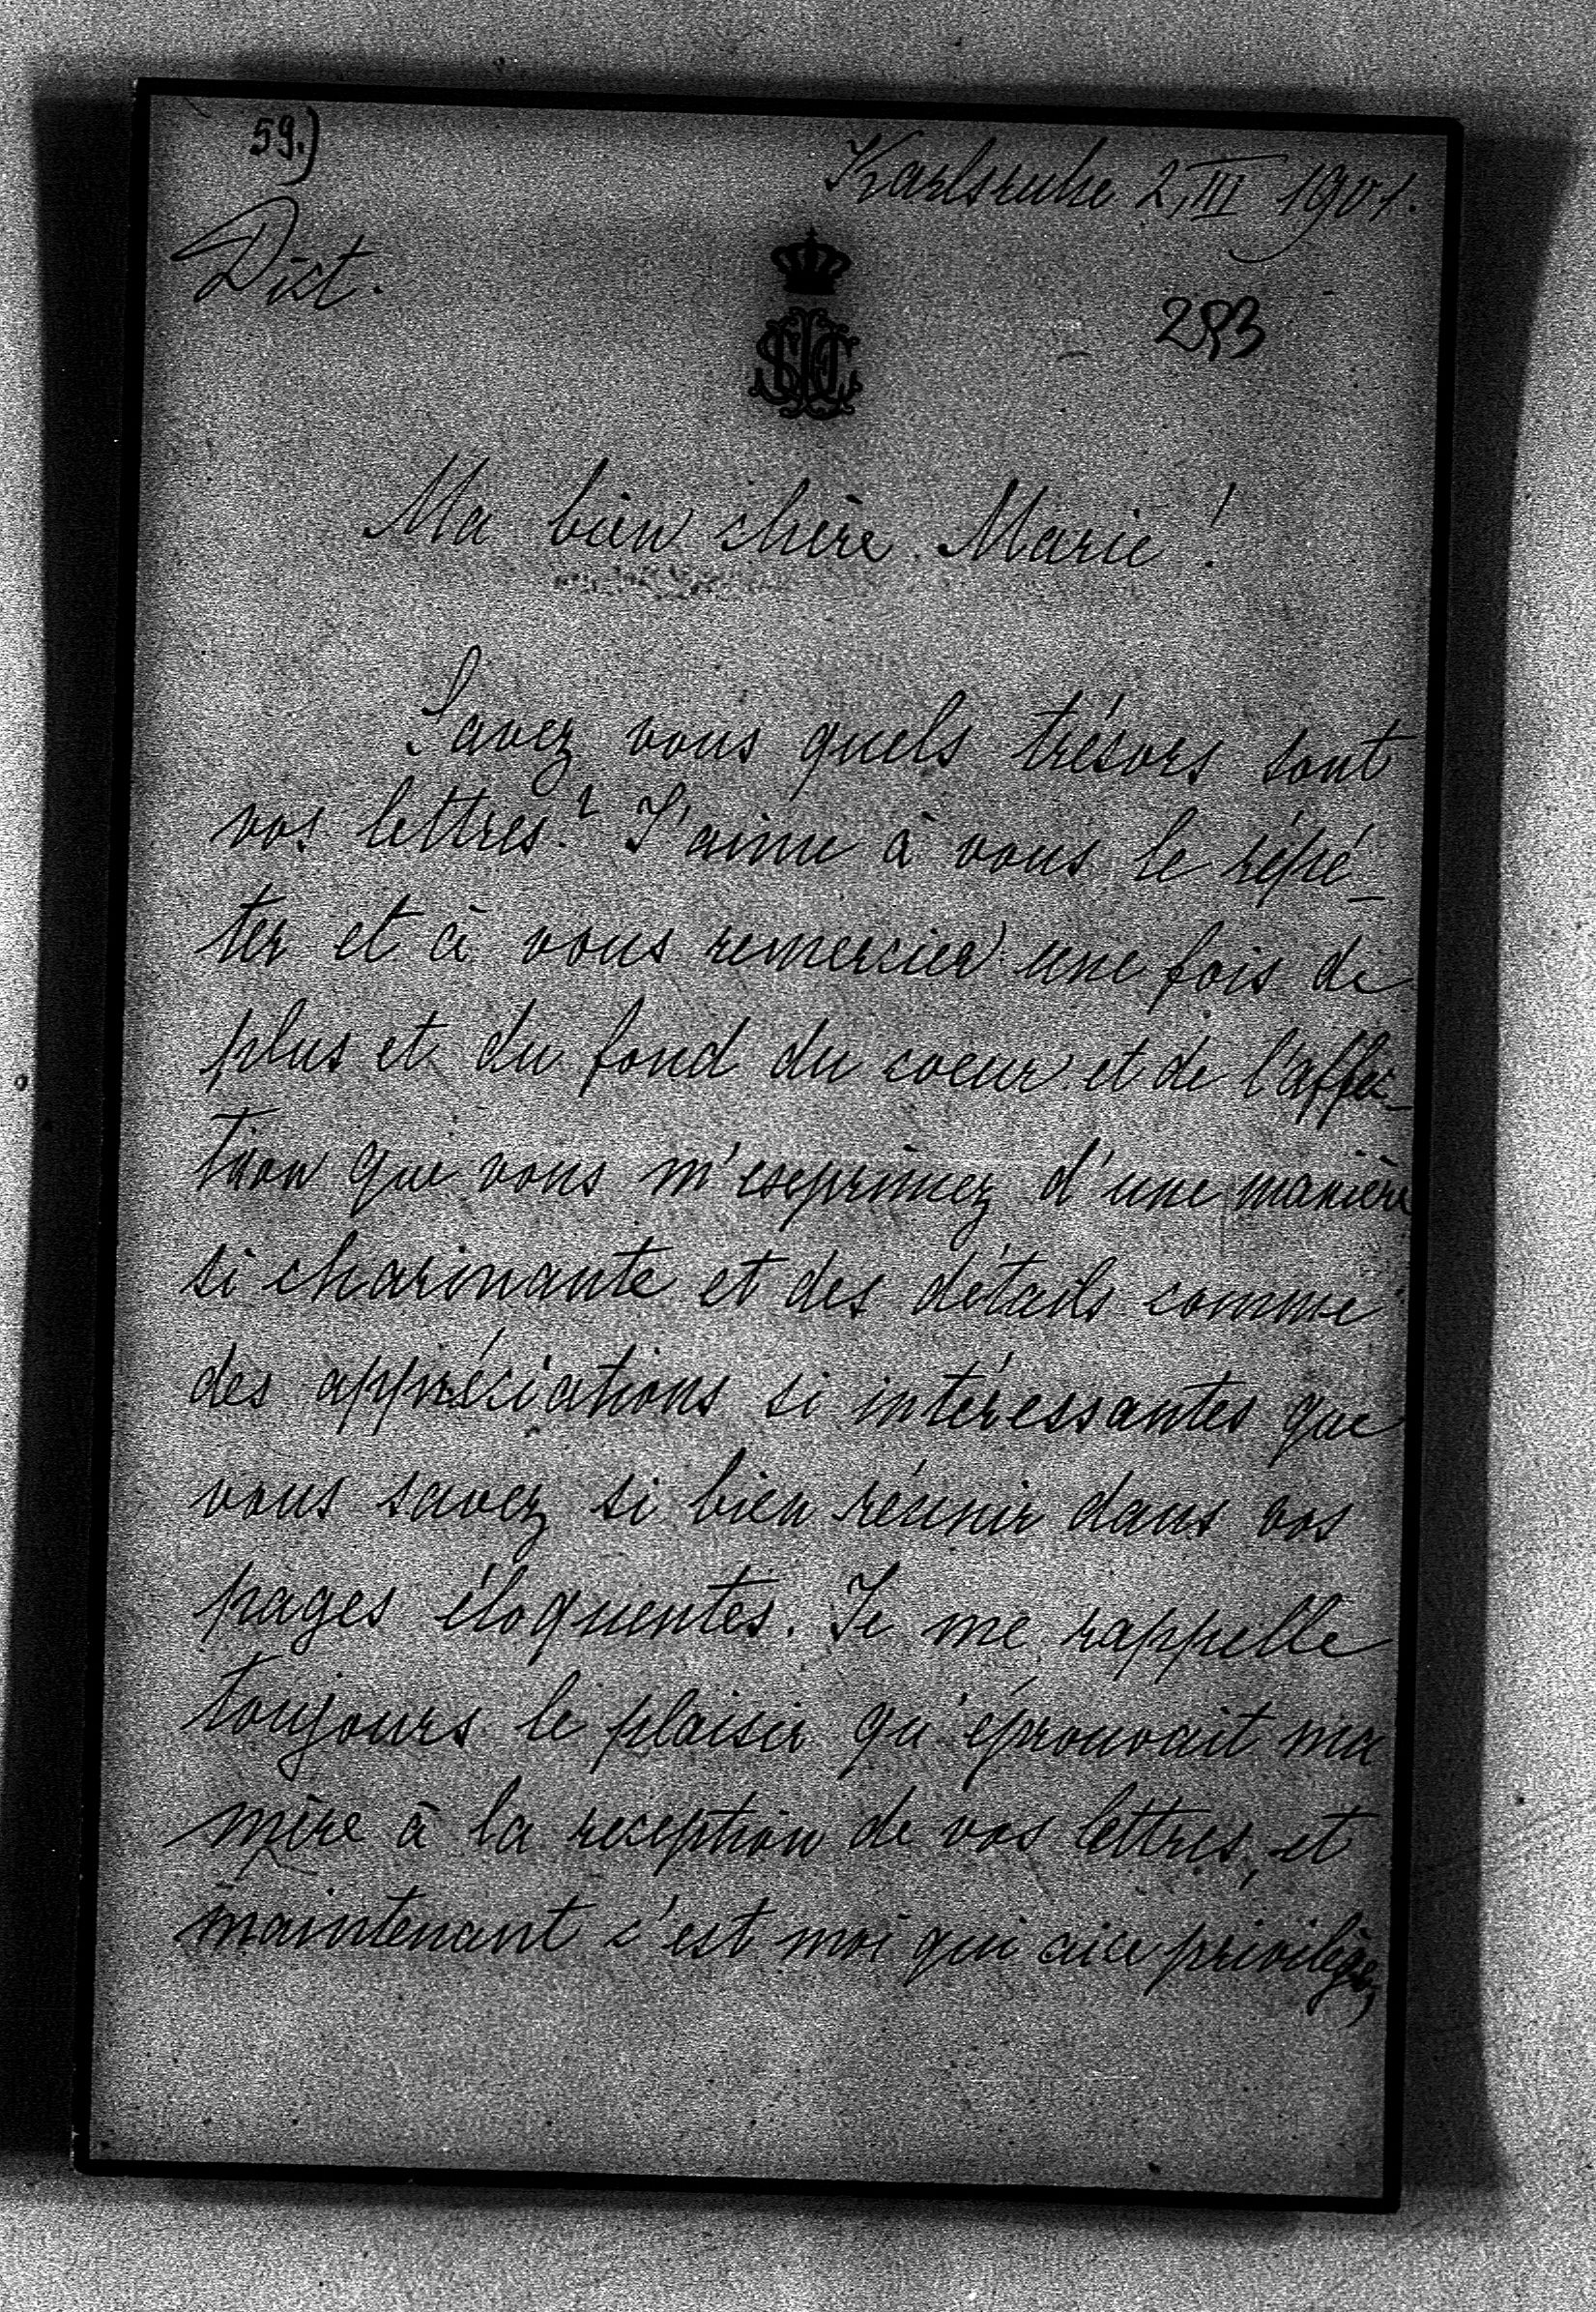 59.)
Karlsruhe 2, III 1901.
Dict.
283
Ma bien chère Marie!
Savez vous quels trésors sont
vos lettres? J'aime à vous le répé-
ter et à vous remercier une fois de
plus et du fond du coeur et de l'affec-
tion que vous m'exprimez d'une manière
si charmante et des détails comme
des appréciations si intéressantes que
vous savez si bien réunir dans vos
pages éloquentes. Je me rappelle
toujours le plaisir qu'éprouvait ma
mère à la reception de vos lettres, et
maintenant c'est moi qui ai ce privilège,